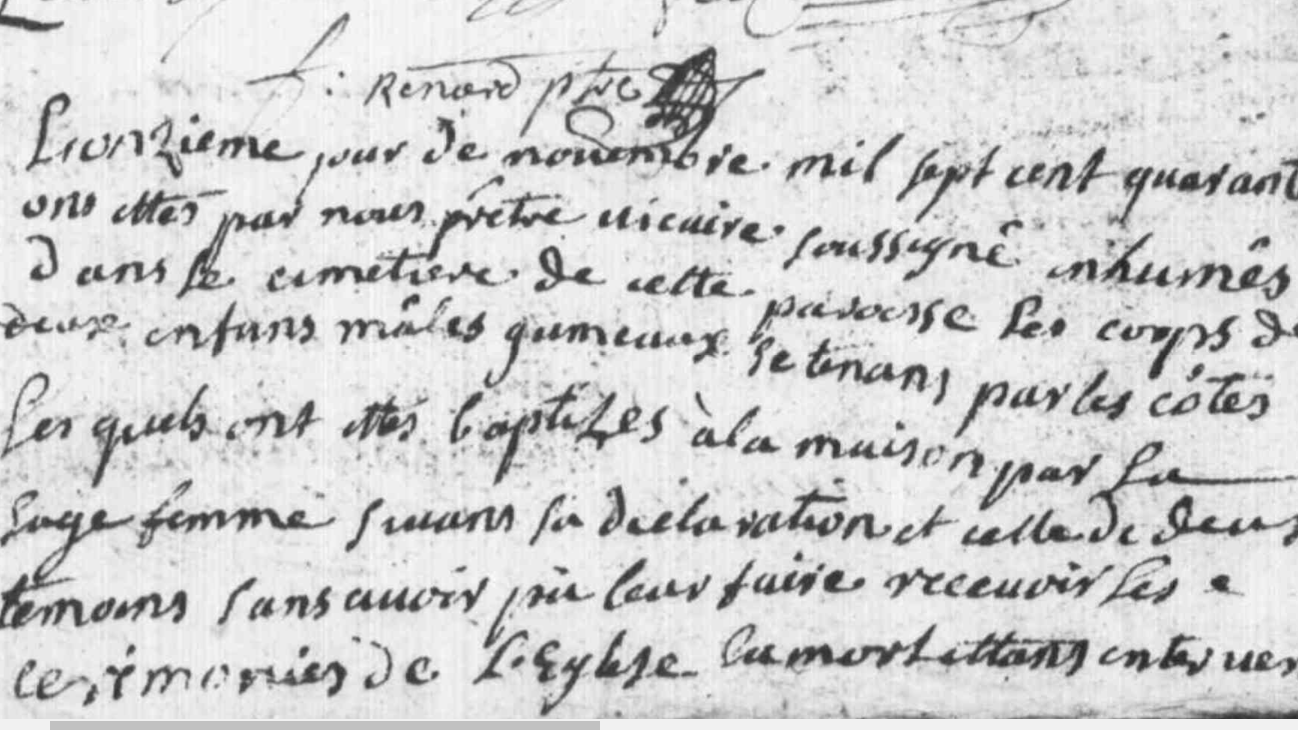 f: Renard ptre
L'onzieme jour de novembre mil sept cent quarant
ons ettes par nous prêtre vicaire soussignê inhumês
dans le cimetiere de cette paroesse les corps de
deux enfans mâles gumeaux se tenans par les côtes
Les quels ont ettes baptizes à la maison par La
sage femme suivans sa declaration et celle de deux
temoins sans avoir pu leur faire recevoir les
ceremonies de L'Eglise La mort ettans